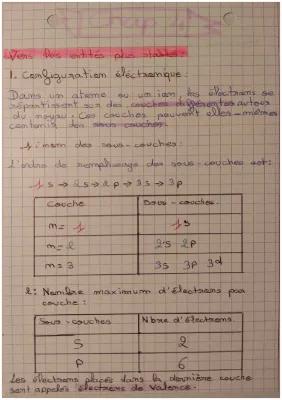 Vers les entités plus stables
1. Configuration électronique :
Dans un atome ou un ion, les électrons se
répartissent sur des couches différentes autour
du noyau. Ces couches peuvent elles-mêmes
contenir des sous couches.
1: nom des sous-couches:
L'ordre de remplissage des sous-couches est:
1s → 2s → 2p → 3s → 3p
Couche Sous-couches
n= 1 1s
n= 2 2s 2p
n= 3 3s 3p 3d
2: Nombre maximum d'électrons par
couche :
Sous-couches Nbre d'électrons
S 2
P 6
Les électrons placés dans la dernière couche
sont appelés électrons de valence.